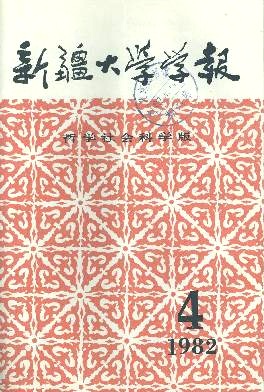 新疆大学学报
哲学社会科学版
4
1982